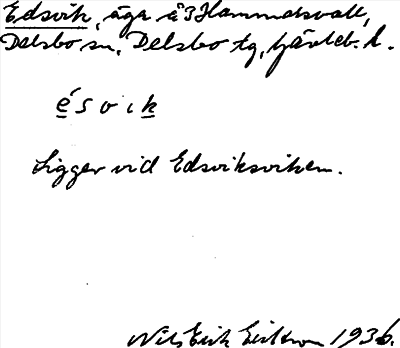 Edsvik, äga å 3 Hammarsvall,
Delsbo sn, Delsbo tg, Gävleb. l.
é s v i k
Ligger vid Edsviksviken.
Nils Erik Eriksson 1936.